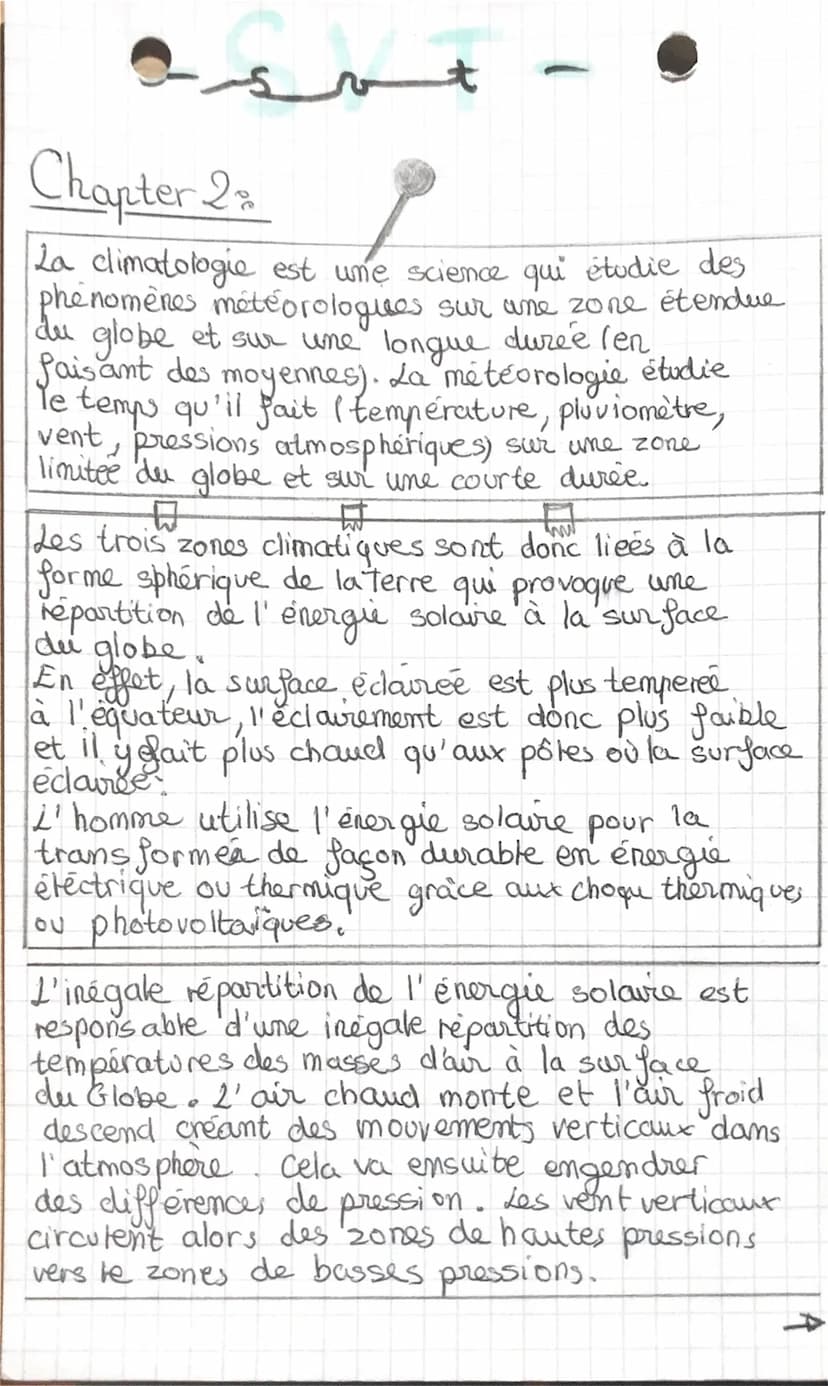 - SVT -
- svt -
Chapter 2:
La climatologie est une science qui étudie des
phénomènes météorologiques sur une zone étendue
du globe et sur une longue durée (en
faisant des moyennes). La météorologie étudie
le temps qu'il fait (température, pluviomètre,
vent, pressions atmosphériques) sur une zone
limitée du globe et sur une courte durée.
Les trois zones climatiques sont donc lieés à la
forme sphérique de la Terre qui provoque une
répartition de l'énergie solaire à la surface
du globe.
En effet, la surface éclaireé est plus tempereé
à l'équateur, l'éclairement est donc plus faible
et il y fait plus chaud qu'aux pôles où la surface
éclairée.
L'homme utilise l'énergie solaire pour la
transformer de façon durable en énergie
éléctrique ou thermique grâce aux choqu thermiques
ou photovoltaïques.
L'inégale répartition de l'énergie solaire est
responsable d'une inégale répartition des
températures des masses d'air à la surface
du Globe. L'air chaud monte et l'air froid
descend créant des mouvements verticaux dans
l'atmosphère. Cela va ensuite engendrer
des différences de pression. Les vent verticaux
circulent alors des zones de hautes pressions
vers le zones de basses pressions.